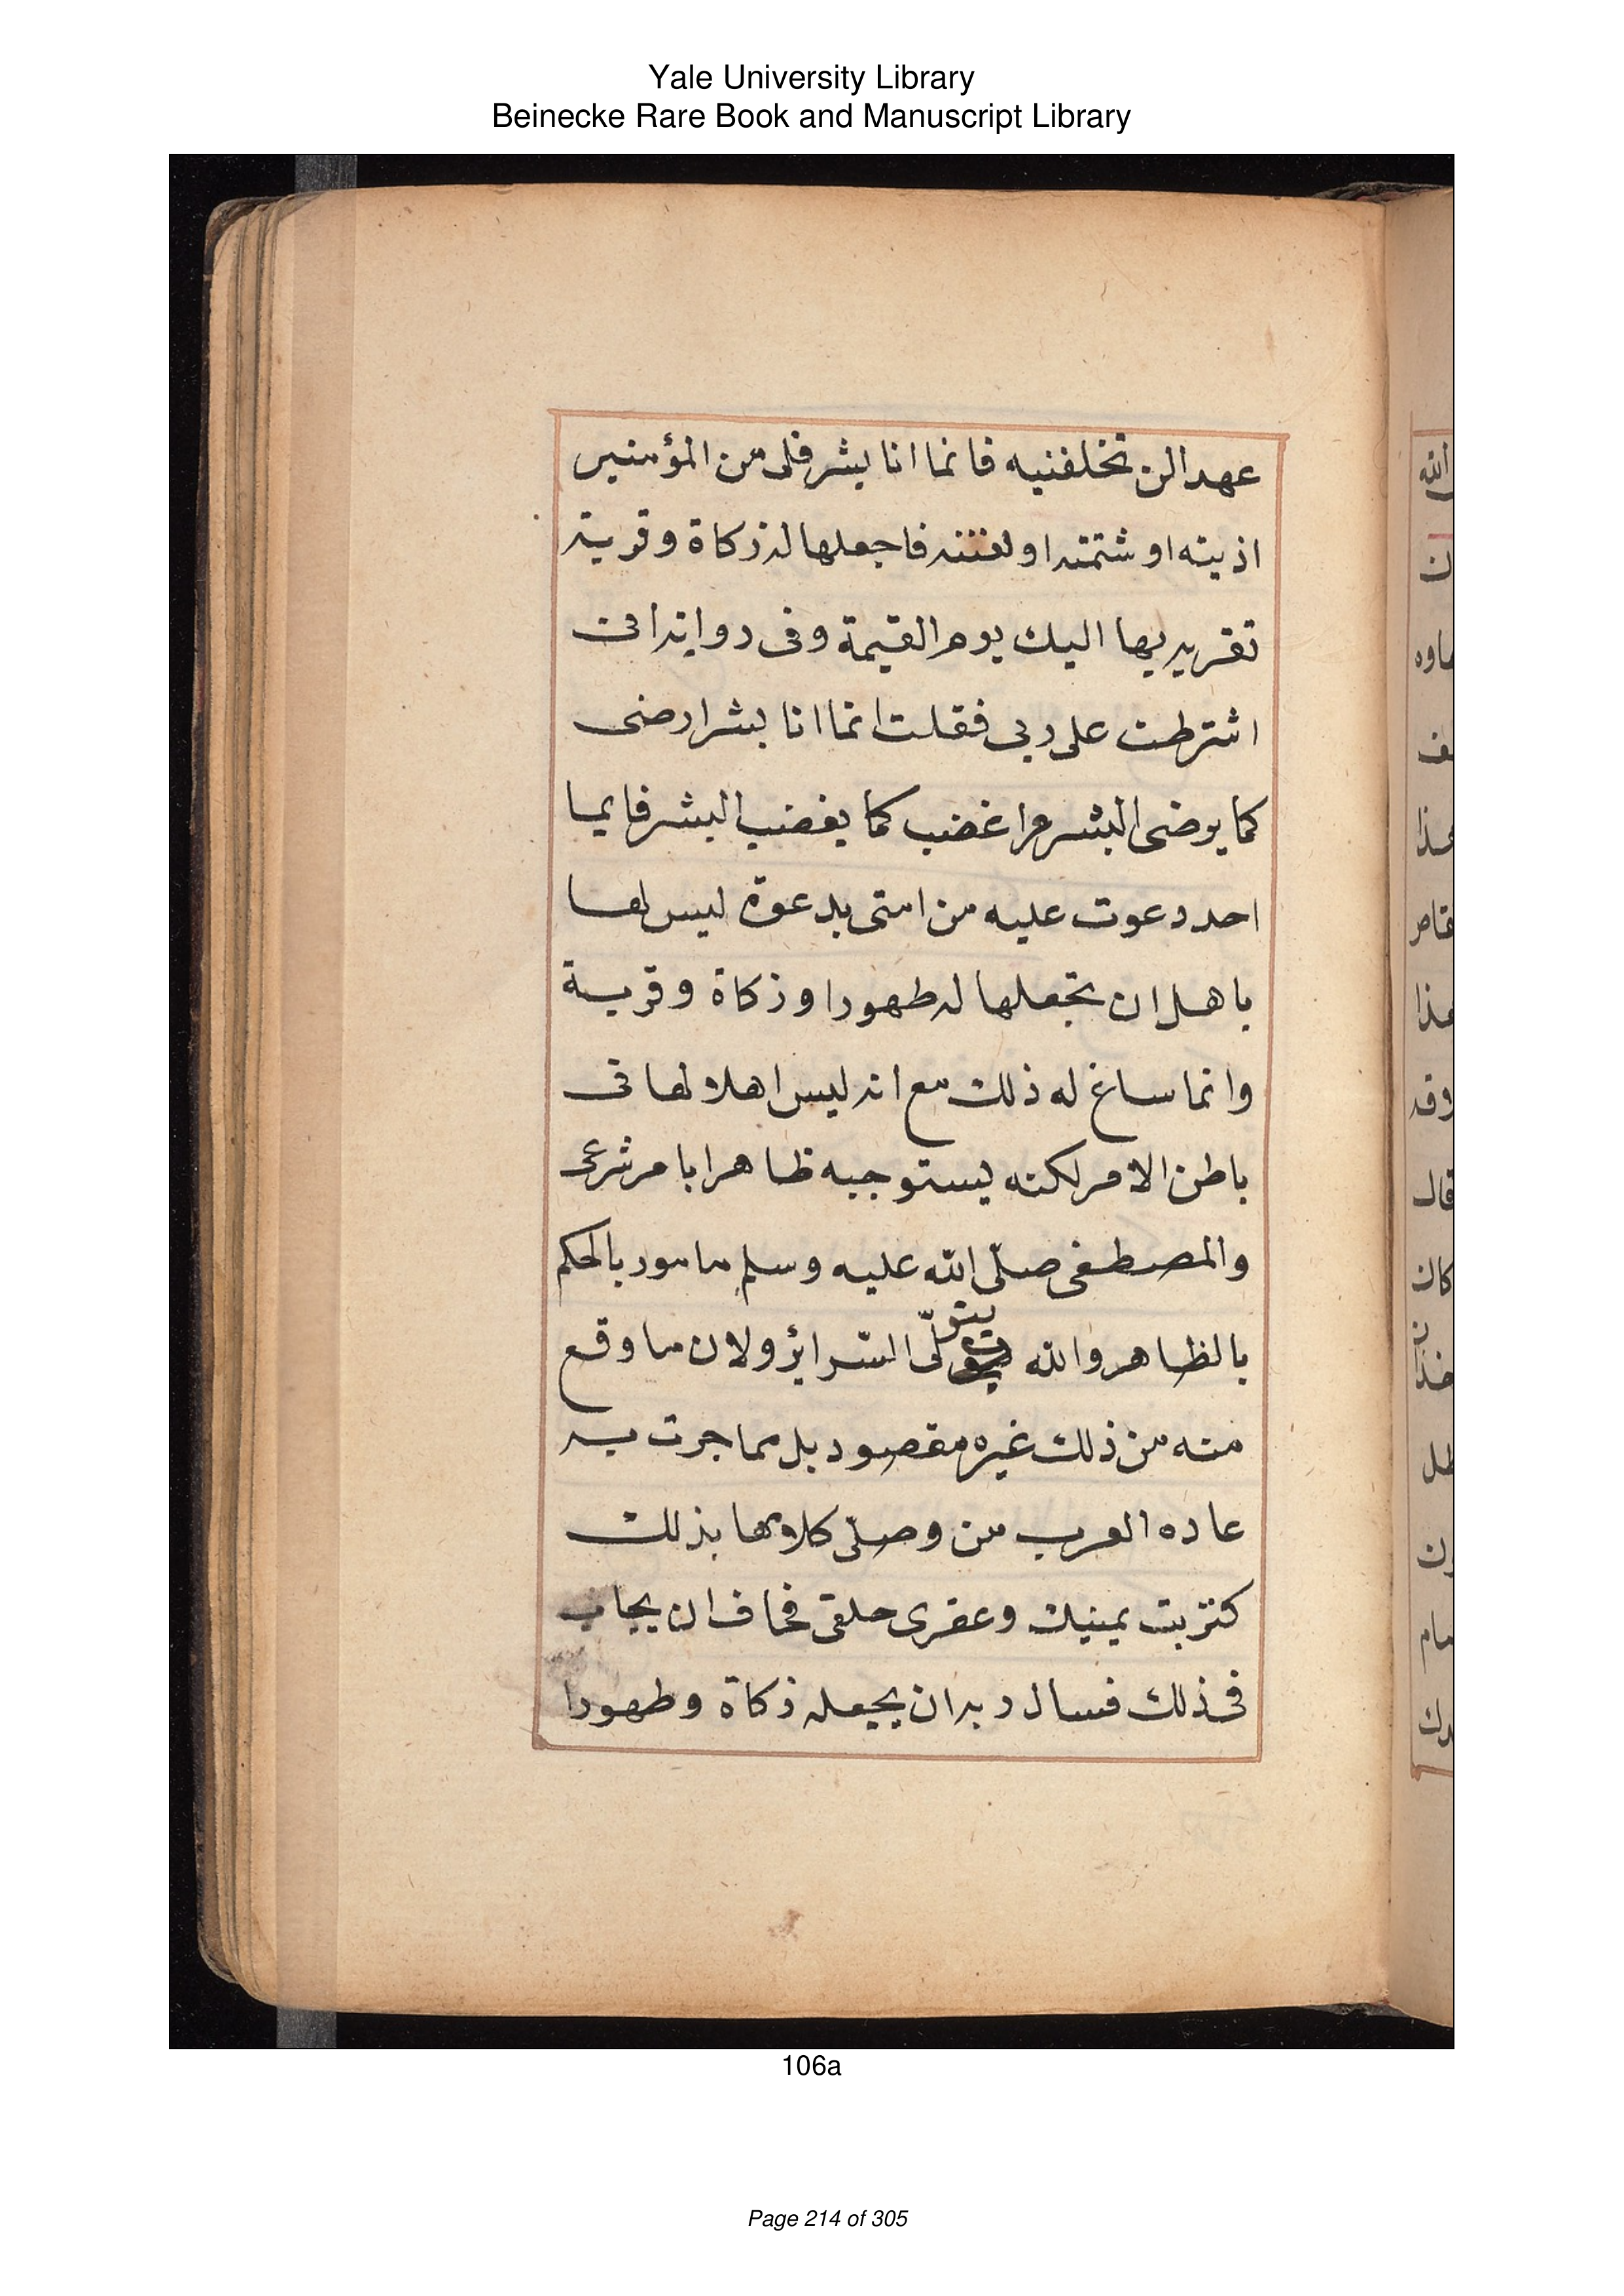 Yale University Library
Beinecke Rare Book and Manuscript Library
عهدا لن تخلفنيه فانما انا بشر فلى من المؤمنين
اذيته او شتمته او لعنته فاجعلها له زكاة وقربة
تقربه بها اليك يوم القيمة وفى رواية انى
اشترطت على ربى فقلت انما انا بشر ارضى
كما يرضى البشر واغضب كما يغضب البشر فايما
احد دعوت عليه من امتى بدعوة ليس لها
باهل ان تجعلها له طهورا وزكاة وقربة
وانما ساغ له ذلك مع انه ليس اهلا لها فى
باطن الامر لكنه يستوجبه ظاهرا بامر شرعى
والمصطفى صلى الله عليه وسلم مامور بالحكم
بالظاهر والله يتولى السرائر ولان ما وقع
منه من ذلك غيره مقصود بل مما جرت به
عاده العرب من وصلى كلامها بذلك
كتربت يمينك وعقرى حلقى فخاف ان يجاب
فى ذلك فسال ربه ان يجعله زكاة وطهورا
الله
ن
هذا
هذا
قال
كان
106a
Page 214 of 305